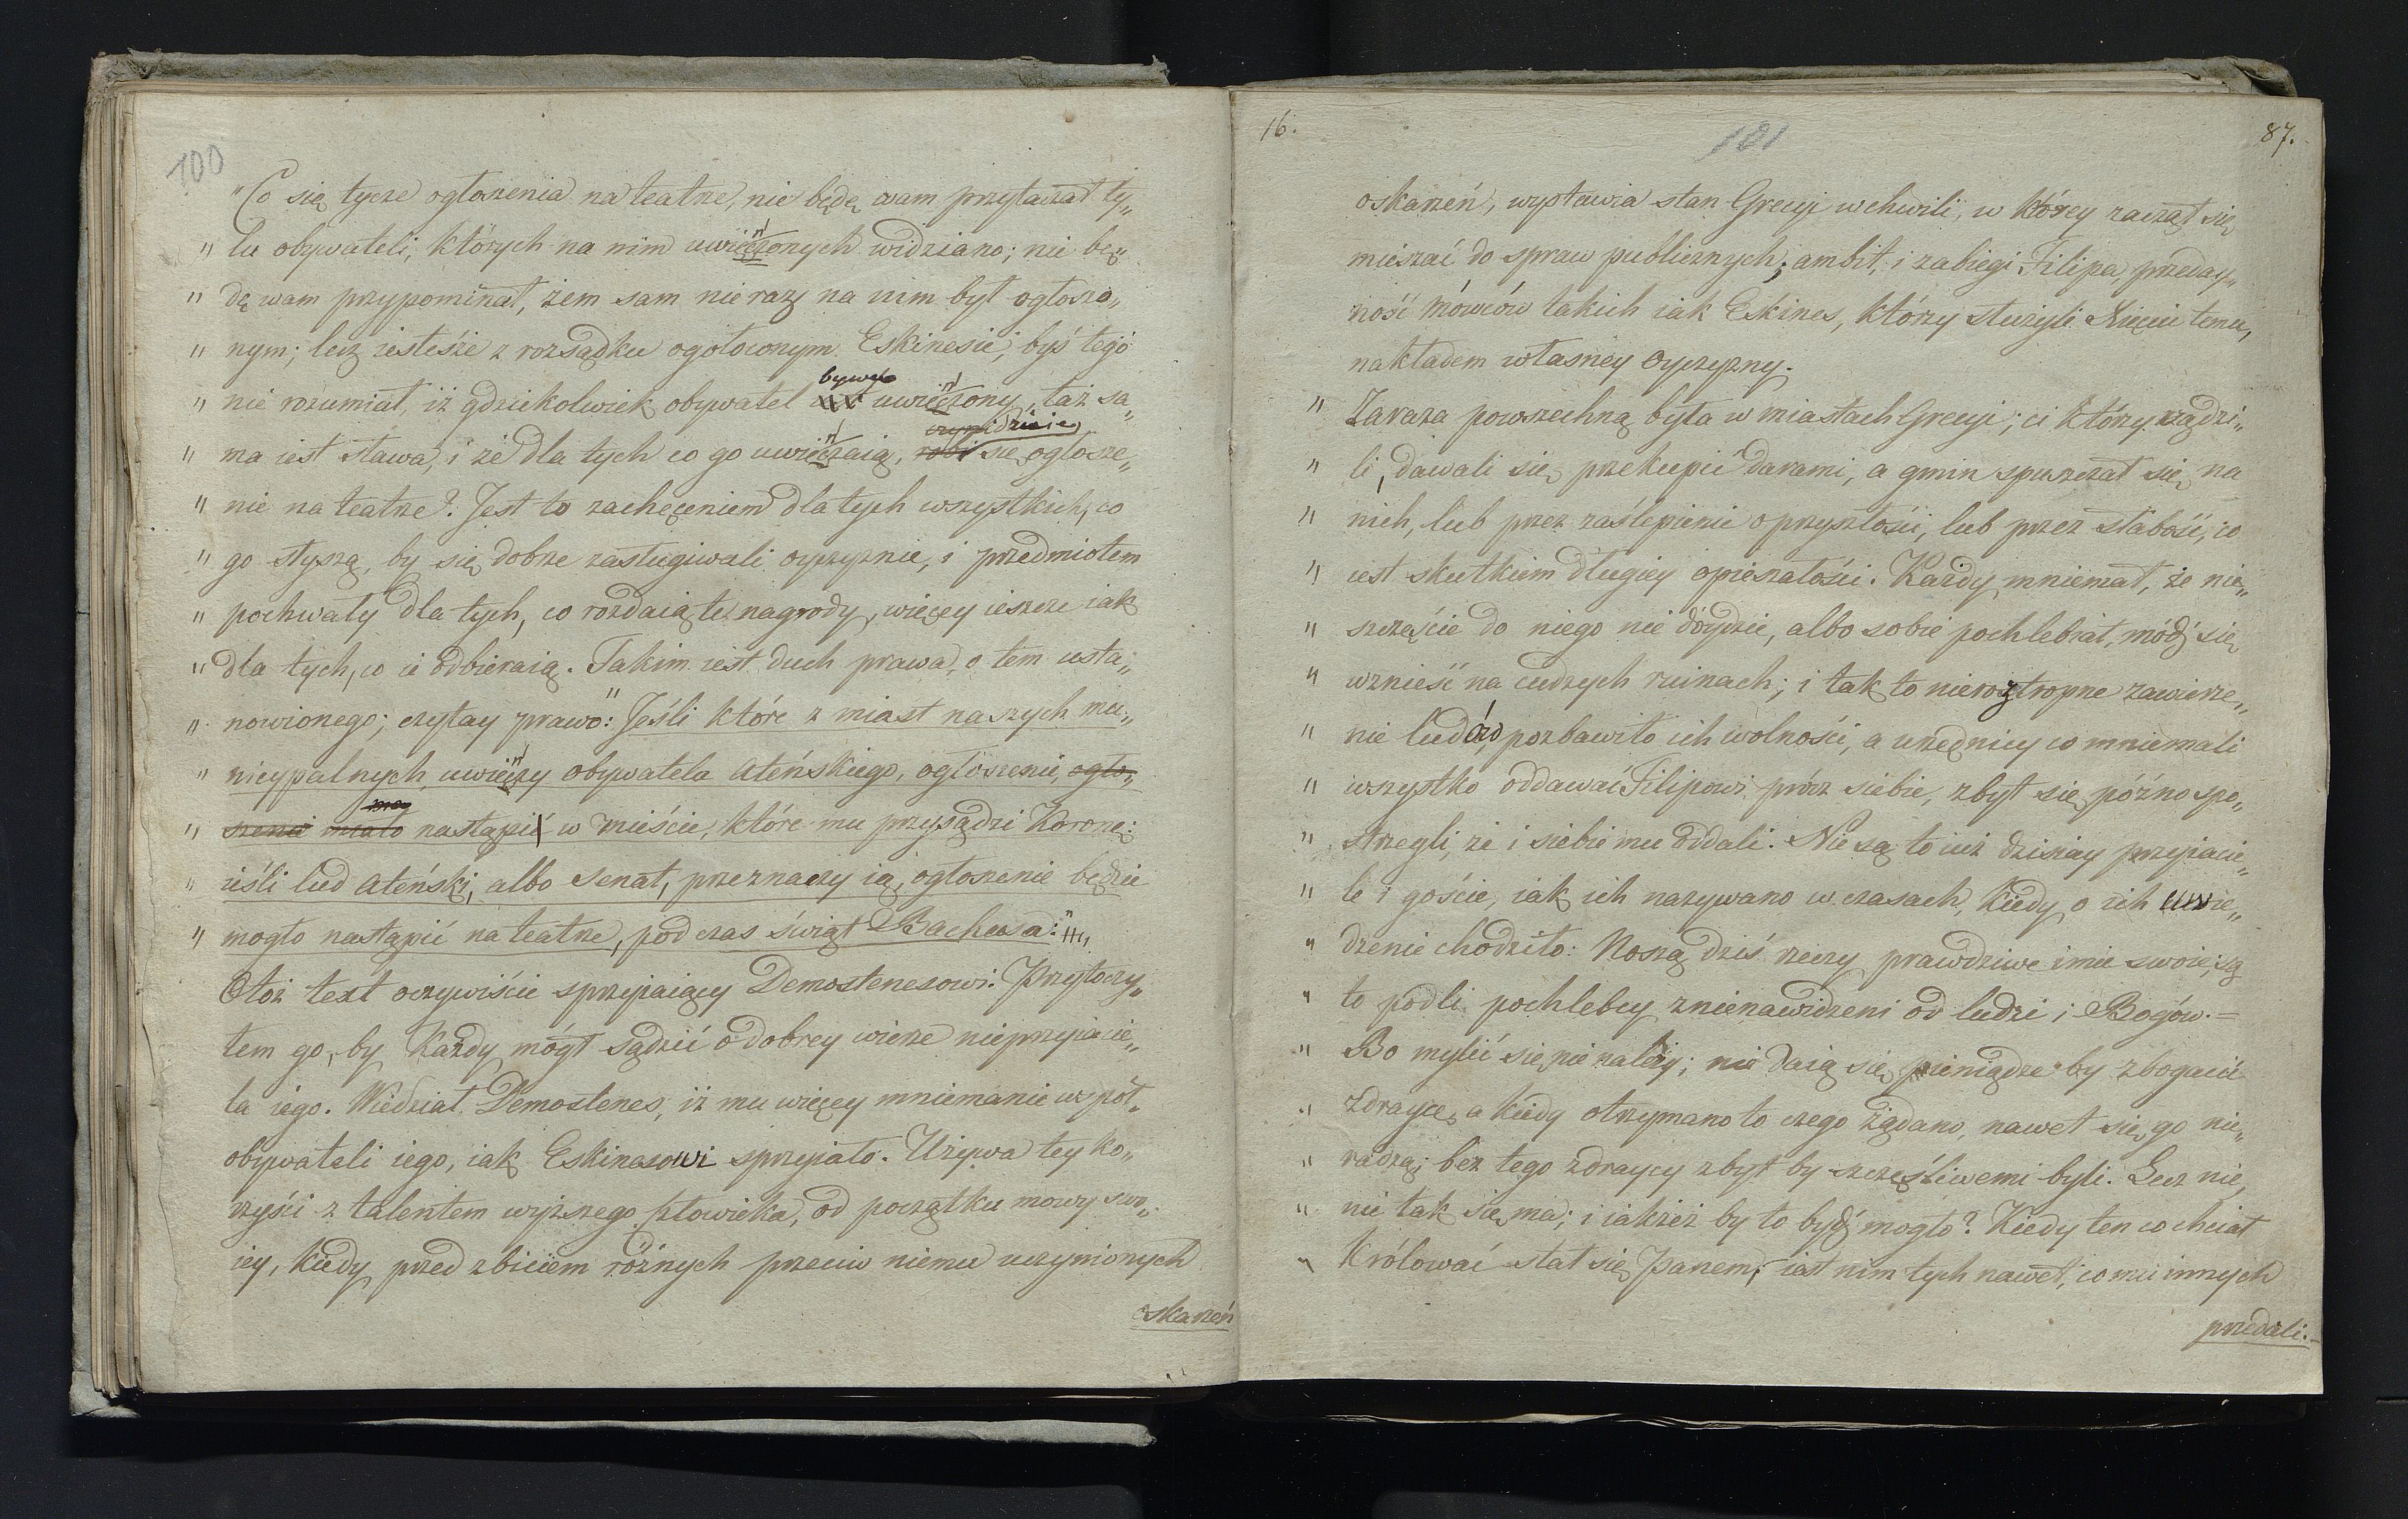 100
"Co się tycze ogłoszenia na teatrze, nie będę wam przytaczał ty„
„ lu obywateli, których na nim uwięczonych widziano; nie bę„
„ dę wam przypominał, żem sam nie raz na nim był ogłoszo„
„ nym; lecz iesteśże z rozsądku ogołoconym Eskinesie, byś tego
bywa
„ nie rozumiał, iż gdziekolwiek obywatel iest uwięczony, taż sa„
dzieie
„ ma iest sława, i że dla tych co go uwięczaią, robi się ogłosze„
„ nie na teatrze? Jest to zachęceniem dla tych wszystkich, co
„ go słyszą, by się dobrze zasługiwali oyczyznie, i przedmiotem
„ pochwały dla tych, co rozdaią te nagrody, więcey ieszcze iak
„ dla tych, co ie odbieraią. Takim iest duch prawa, o tem usta„
„ nowionego; czytay prawo: "Jeśli które z miast naszych mu„
„ nicypalnych, uwięczy obywatela Ateńskiego, ogłoszenie, ogło„
„ szenie miało nastąpić w mieście, które mu przysądzi Koronę:
„ ieśli lud Ateński, albo Senat, przeznaczy ią, ogłoszenie będzie
„ mogło nastąpić na teatrze, podczas świąt Bachusa:"
Otóż text oczywiście sprzyiaiący Demostenesowi. Przytoczy„
łem go, by Każdy mógł sądzić o dobrey wierze nieprzyiacie„
la iego. Wiedział Demostenes, iż mu więcey mniemanie współ„
obywateli iego, iak Eskinesowi sprzyiało. Używa tey ko„
rzyści z talentem wyższego człowieka, od początku mowy swo„
iey, kiedy przed zbiciem różnych przeciw niemu uczynionych
oskarzeń
16.
101
87.
oskarzeń, wystawia stan Grecyi w chwili, w którey zaczął się
mieszać do spraw publicznych; ambit, i zabiegi Filipa, przeday„
ność Mówców takich iak Eskines, którzy służyli Xięciu temu,
nakładem własney oyczyzny.
„ Zaraza powszechną była w miastach Grecyi; ci którzy rządzi„
„ li, dawali się przekupić darami, a gmin spuszczał się na
„ nich, lub przez zaślepienie o przyszłości, lub przez słabość, co
„ iest skutkiem długiey opieszałości. Każdy mniemał, że nie„
„ szczęście do niego nie dóydzie, albo sobie pochlebiał, módz się
„ wznieść na cudzych ruinach; i tak to nieroztropne zawierze„
„ nie ludów, pozbawiło ich wolności, a urzędnicy co mniemali
„ wszystko oddawać Filipowi prócz siebie, zbyt się późno spo„
„ strzegli, że i siebie mu oddali. Nie są to iuż dzisiay przyiacie„
„ le i goście, iak ich nazywano w czasach, kiedy o ich uwie„
„ dzenie chodziło: Noszą dziś rzeczy prawdziwe imie swoie; są
„ to podli pochlebcy znienawidzeni od ludzi i Bogów. =
„ Bo mylić się nie należy; nie daią się pieniądze by zbogacić
„ zdraycę, a kiedy otrzymano to czego żądano, nawet się go nie„
„ radzą; bez tego zdraycy zbyt by szczęśliwemi byli. Lecz nie,
„ nie tak się ma; i iakżeż by to bydź mogło? Kiedy ten co chciał
„ Królować stał się Panem; iest nim tych nawet, co mu innych
przedali.